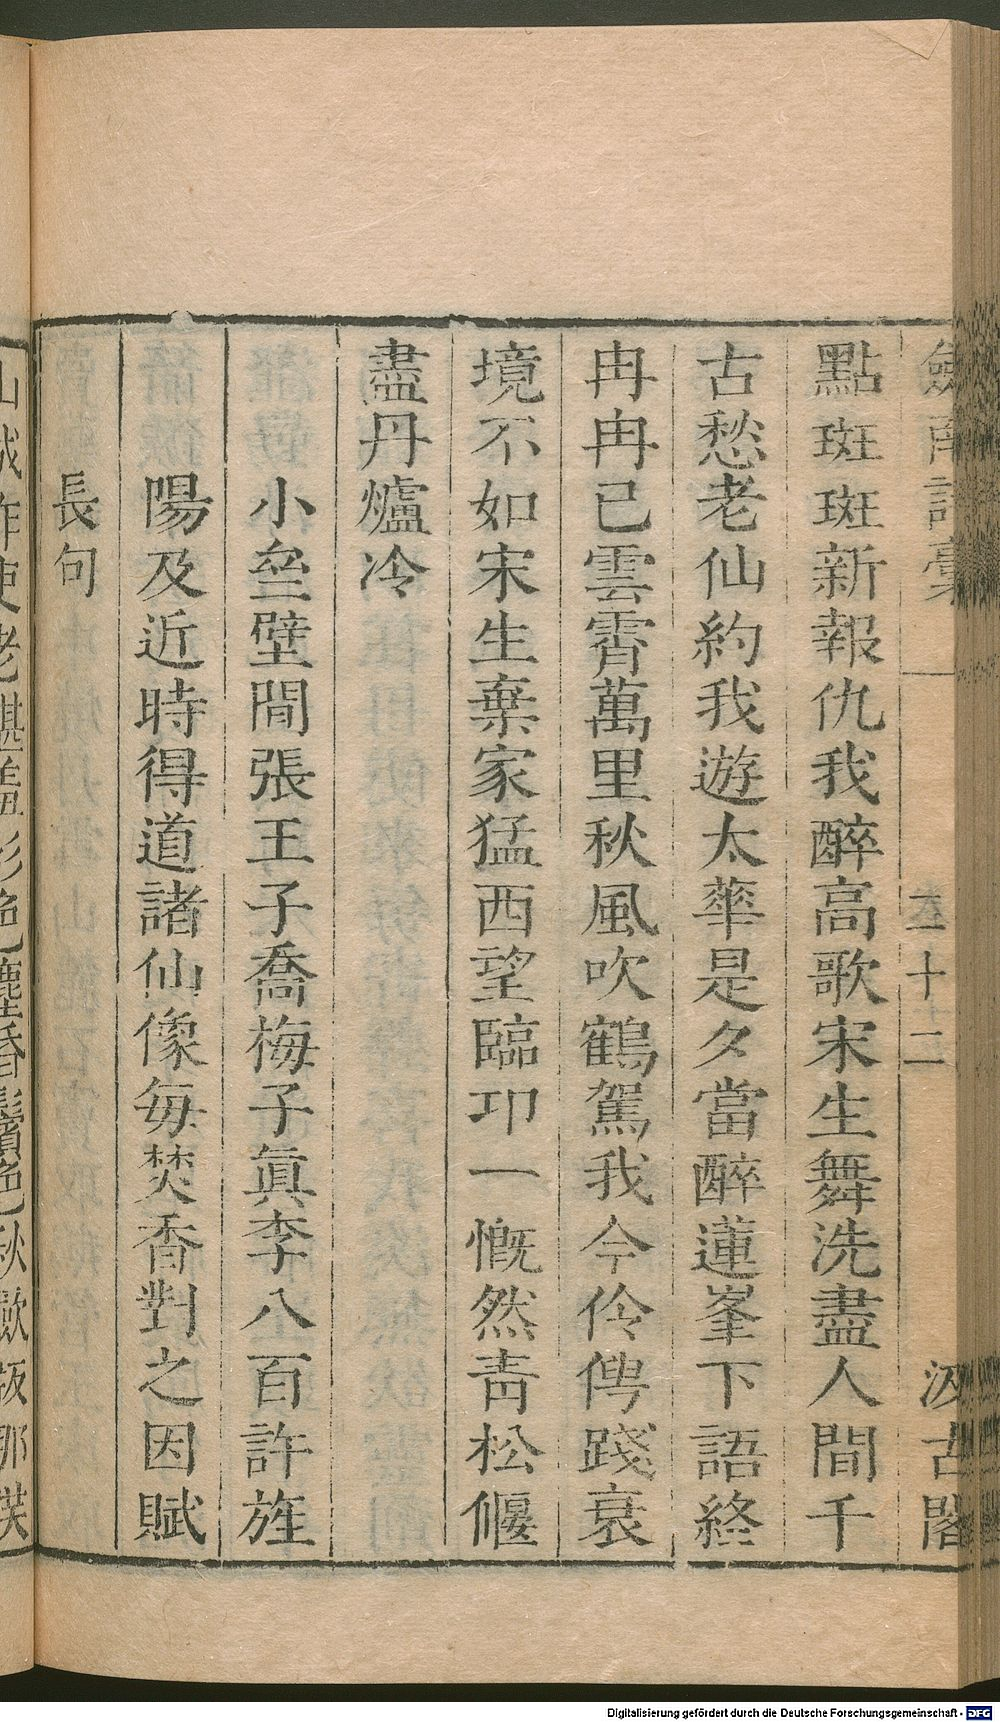 劍南詩稾 卷十二 汲古閣
點斑斑新報仇我醉高歌宋生舞洗盡人間千
古愁老仙約我遊太華是夕當醉蓮峯下語終
冉冉已雲霄萬里秋風吹鶴駕我今伶俜踐衰
境不如宋生棄家猛西望臨卭一慨然靑松偃
盡丹爐冷
小壘壁間張王子喬梅子眞李八百許旌
陽及近時得道諸仙像每焚香對之因賦
長句
Digitalisierung gefördert durch die Deutsche Forschungsgemeinschaft - DFG